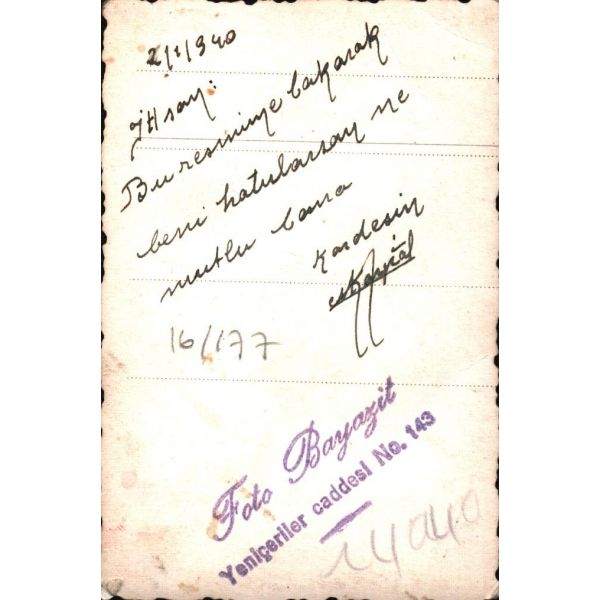 2/1/940
İHsan:
Bu resmime bakarak
beni hatularsan ne
mutlu bana
kardesin
16/177
Foto Bayazit
Yeniçeriler caddesi No. 143
14040